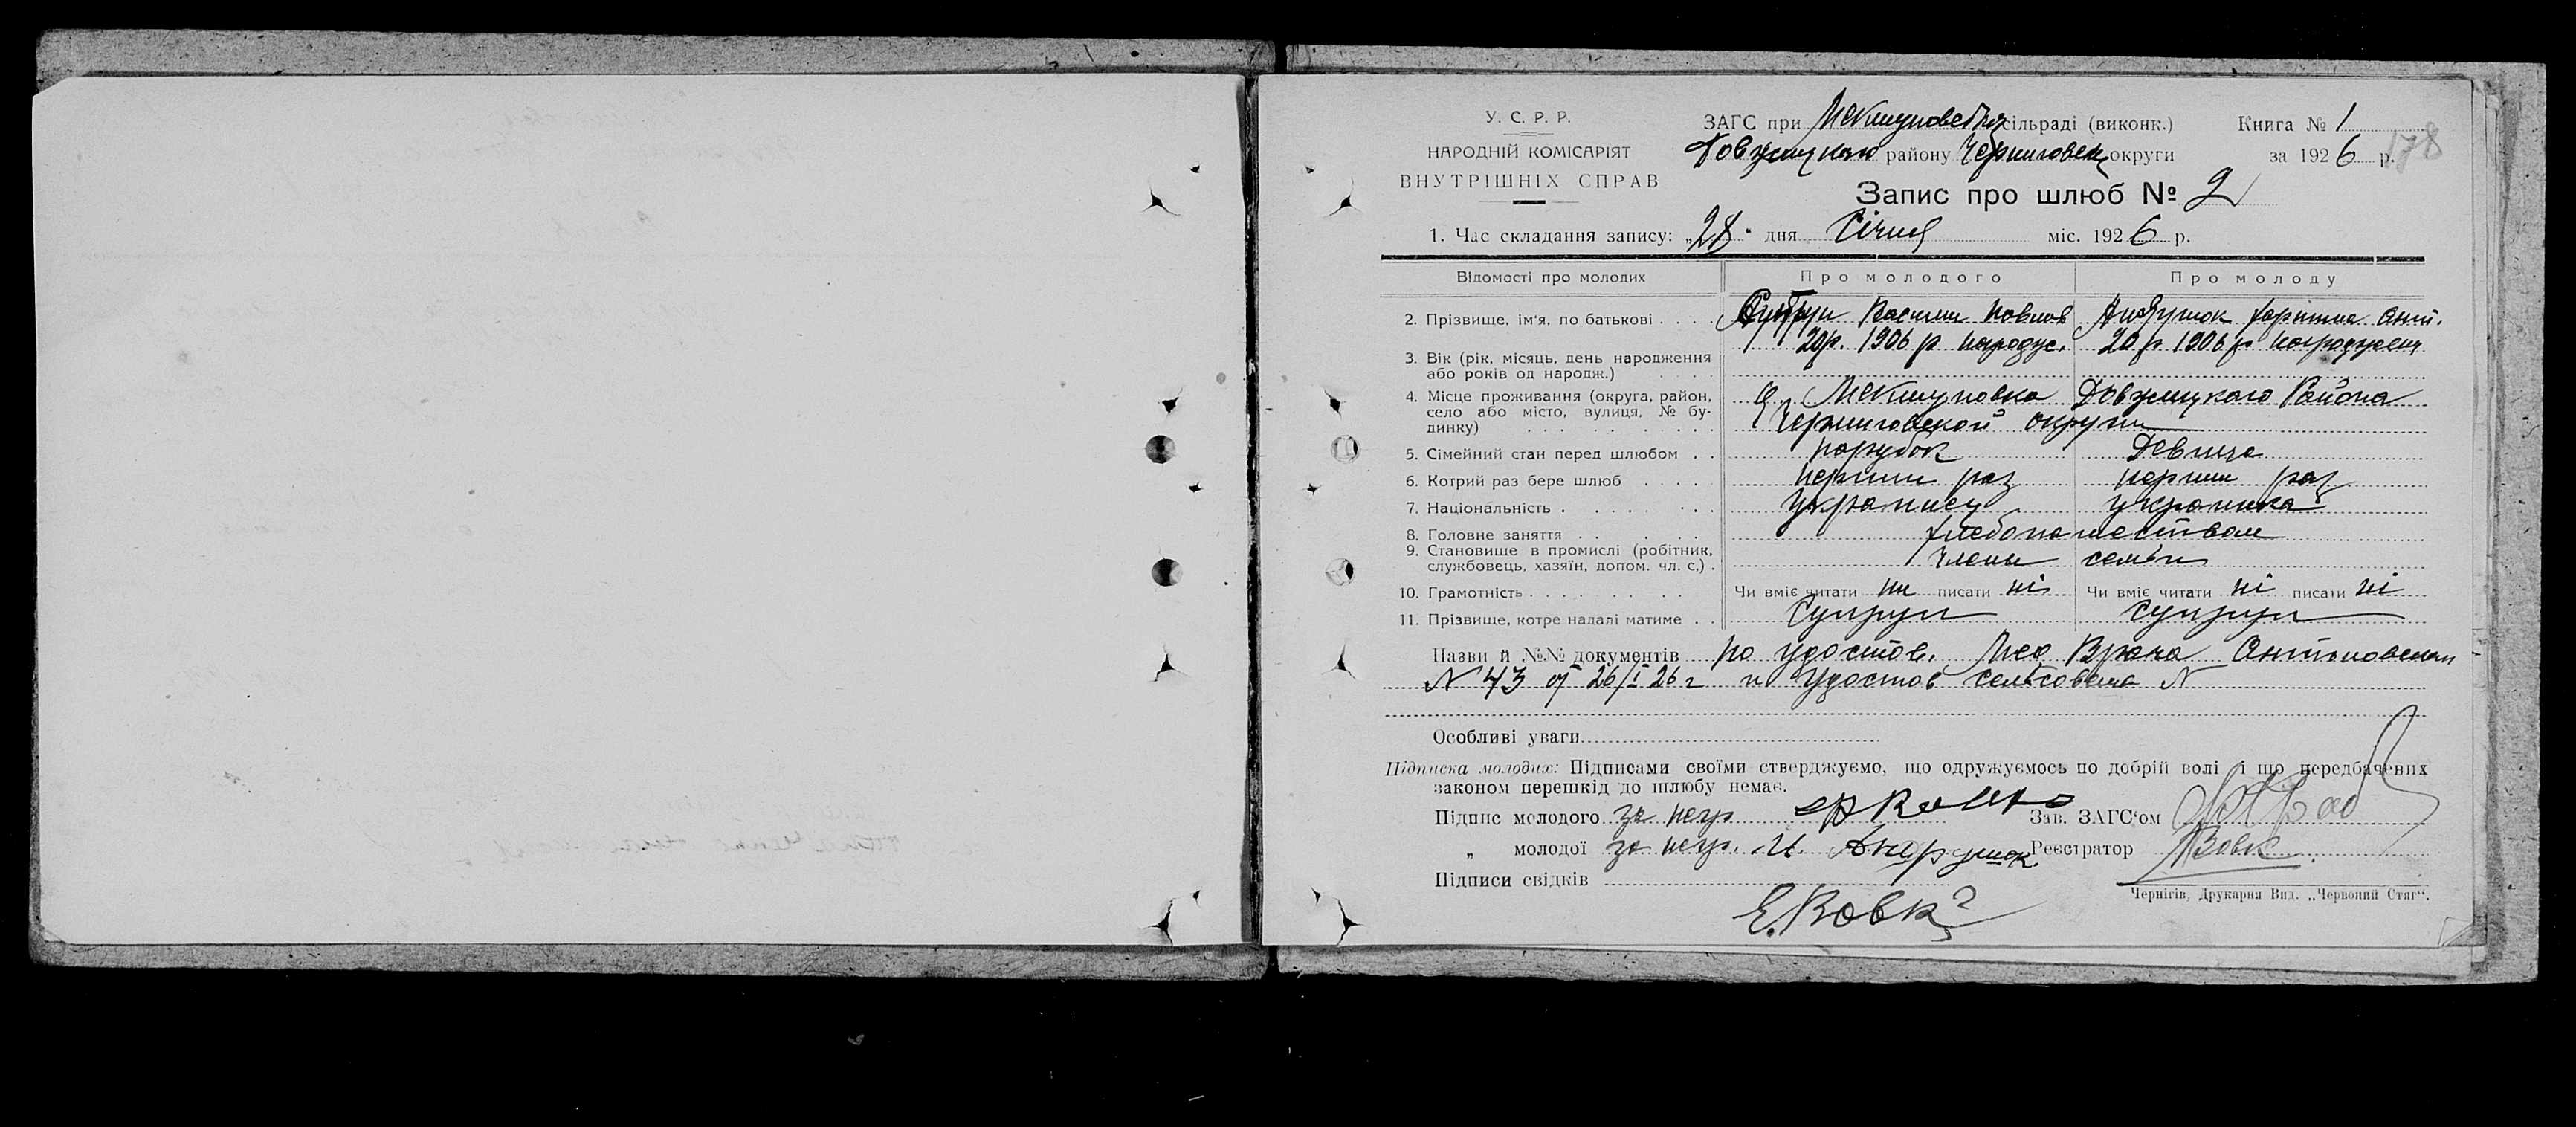 У. С. Р. Р.
НАРОДНІЙ КОМІСАРІЯТ
ВНУТРІШНІХ СПРАВ
ЗАГС при сільраді (виконк.)
району Черниговск округи
Книга № 1
за 1926 р.
178
Запис про шлюб № 2
1. Час складання запису: „28“ дня Січня міс. 1926 р.
Відомості про молодих Про молодого Про молоду
2. Прізвище, ім'я, по батькові . . . . Супрун Василий Павлов Андрушок Ант.
3. Вік (рік, місяць, день народження 20 р. 1906 р народж. 20 р 1906 р народжен
або років од народж.) . . .
4. Місце проживання (округа, район, Довжицкаго Района
село або місто, вулиця, № бу- Черниговской округи
динку) . . . . . . . .
5. Сімейний стан перед шлюбом . . парубок Девица
6. Котрий раз бере шлюб . . . . . перший раз перший раз
7. Національність . . . . . . . . украинец украинка
8. Головне заняття . . . . . . хлебопашеством
9. Становище в промислі (робітник,
службовець, хазяїн, допом. чл. с.) . члены семьи
10. Грамотність . . . . . . . . Чи вміє читати ни писати ні Чи вміє читати ні писати ні
11. Прізвище, котре надалі матиме . . Супрун Супрун
Назви й №№ документів по удостов. Врача
N 43 от 26/I 26 г и удостов сельсовета N
Особливі уваги
Підписка молодих: Підписами своїми стверджуємо, що одружуємось по добрій волі і що передбачених
законом перешкід до шлюбу немає.
Підпис молодого за негр
Зав. ЗАГС'ом
„ молодої за негр. И. Андрушок.
Реєстратор Вовк
Підписи свідків
Е. Вовк
Чернігів, Друкарня Вид. „Червоний Стяг“.